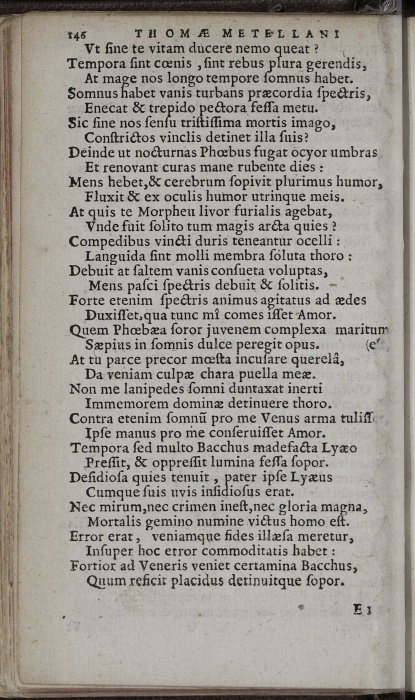 146 THOMÆ METELLANI
Vt sine te vitam ducere nemo queat?
Tempora sint cœnis, sint rebus plura gerendis,
At mage nos longo tempore somnus habet.
Somnus habet vanis turbans præcordia spectris,
Enecat & trepido pectora fessa metu.
Sic sine nos sensu tristissima mortis imago,
Constrictos vinclis detinet illa suis?
Deinde ut nocturnas Phœbus fugat ocyor umbras
Et renovant curas mane rubente dies:
Mens hebet, & cerebrum sopivit plurimus humor,
Fluxit & ex oculis humor utrinque meis.
At quis te Morpheu livor furialis agebat,
Vnde fuit solito tum magis arcta quies?
Compedibus vincti duris teneantur ocelli:
Languida sint molli membra soluta thoro:
Debuit at saltem vanis consueta voluptas,
Mens pasci spectris debuit & solitis.
Forte etenim spectris animus agitatus ad ædes
Duxisset, qua tunc mî comes isset Amor.
Quem Phœbæa soror juvenem complexa maritum
Sæpius in somnis dulce peregit opus. (e
At tu parce precor mœsta incusare querelâ,
Da veniam culpæ chara puella meæ.
Non me lanipedes somni duntaxat inerti
Immemorem dominæ detinuere thoro.
Contra etenim somnũ pro me Venus arma tulisse
Ipse manus pro me conseruisset Amor.
Tempora sed multo Bacchus madefacta Lyæo
Pressit, & oppressit lumina fessa sopor.
Desidiosa quies tenuit, pater ipse Lyæus
Cumque suis uvis insidiosus erat.
Nec mirum, nec crimen inest, nec gloria magna,
Mortalis gemino numine victus homo est.
Error erat, veniamque fides illæsa meretur,
Insuper hoc error commoditatis habet:
Fortior ad Veneris veniet certamina Bacchus,
Quum reficit placidus detinuitque sopor.
E 1